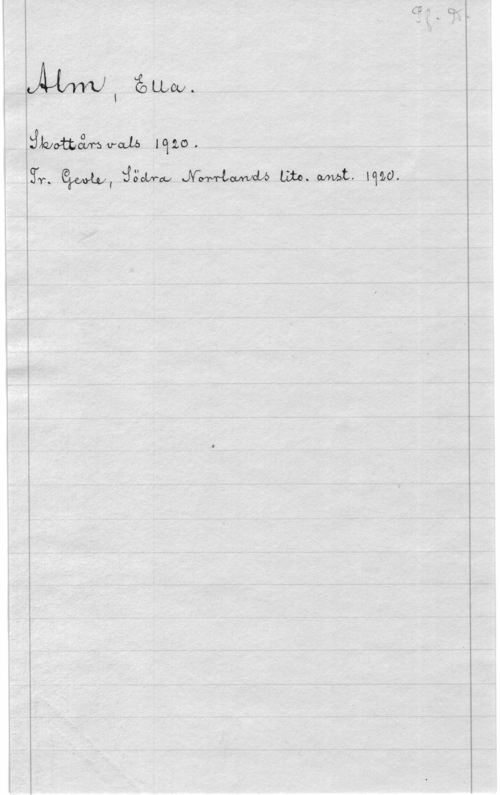 Pf. Dr.
Alm, Ella.
Skottårsvals 1920.
Tr. Gevle, Södra Norrlands lito. anst. 1920.